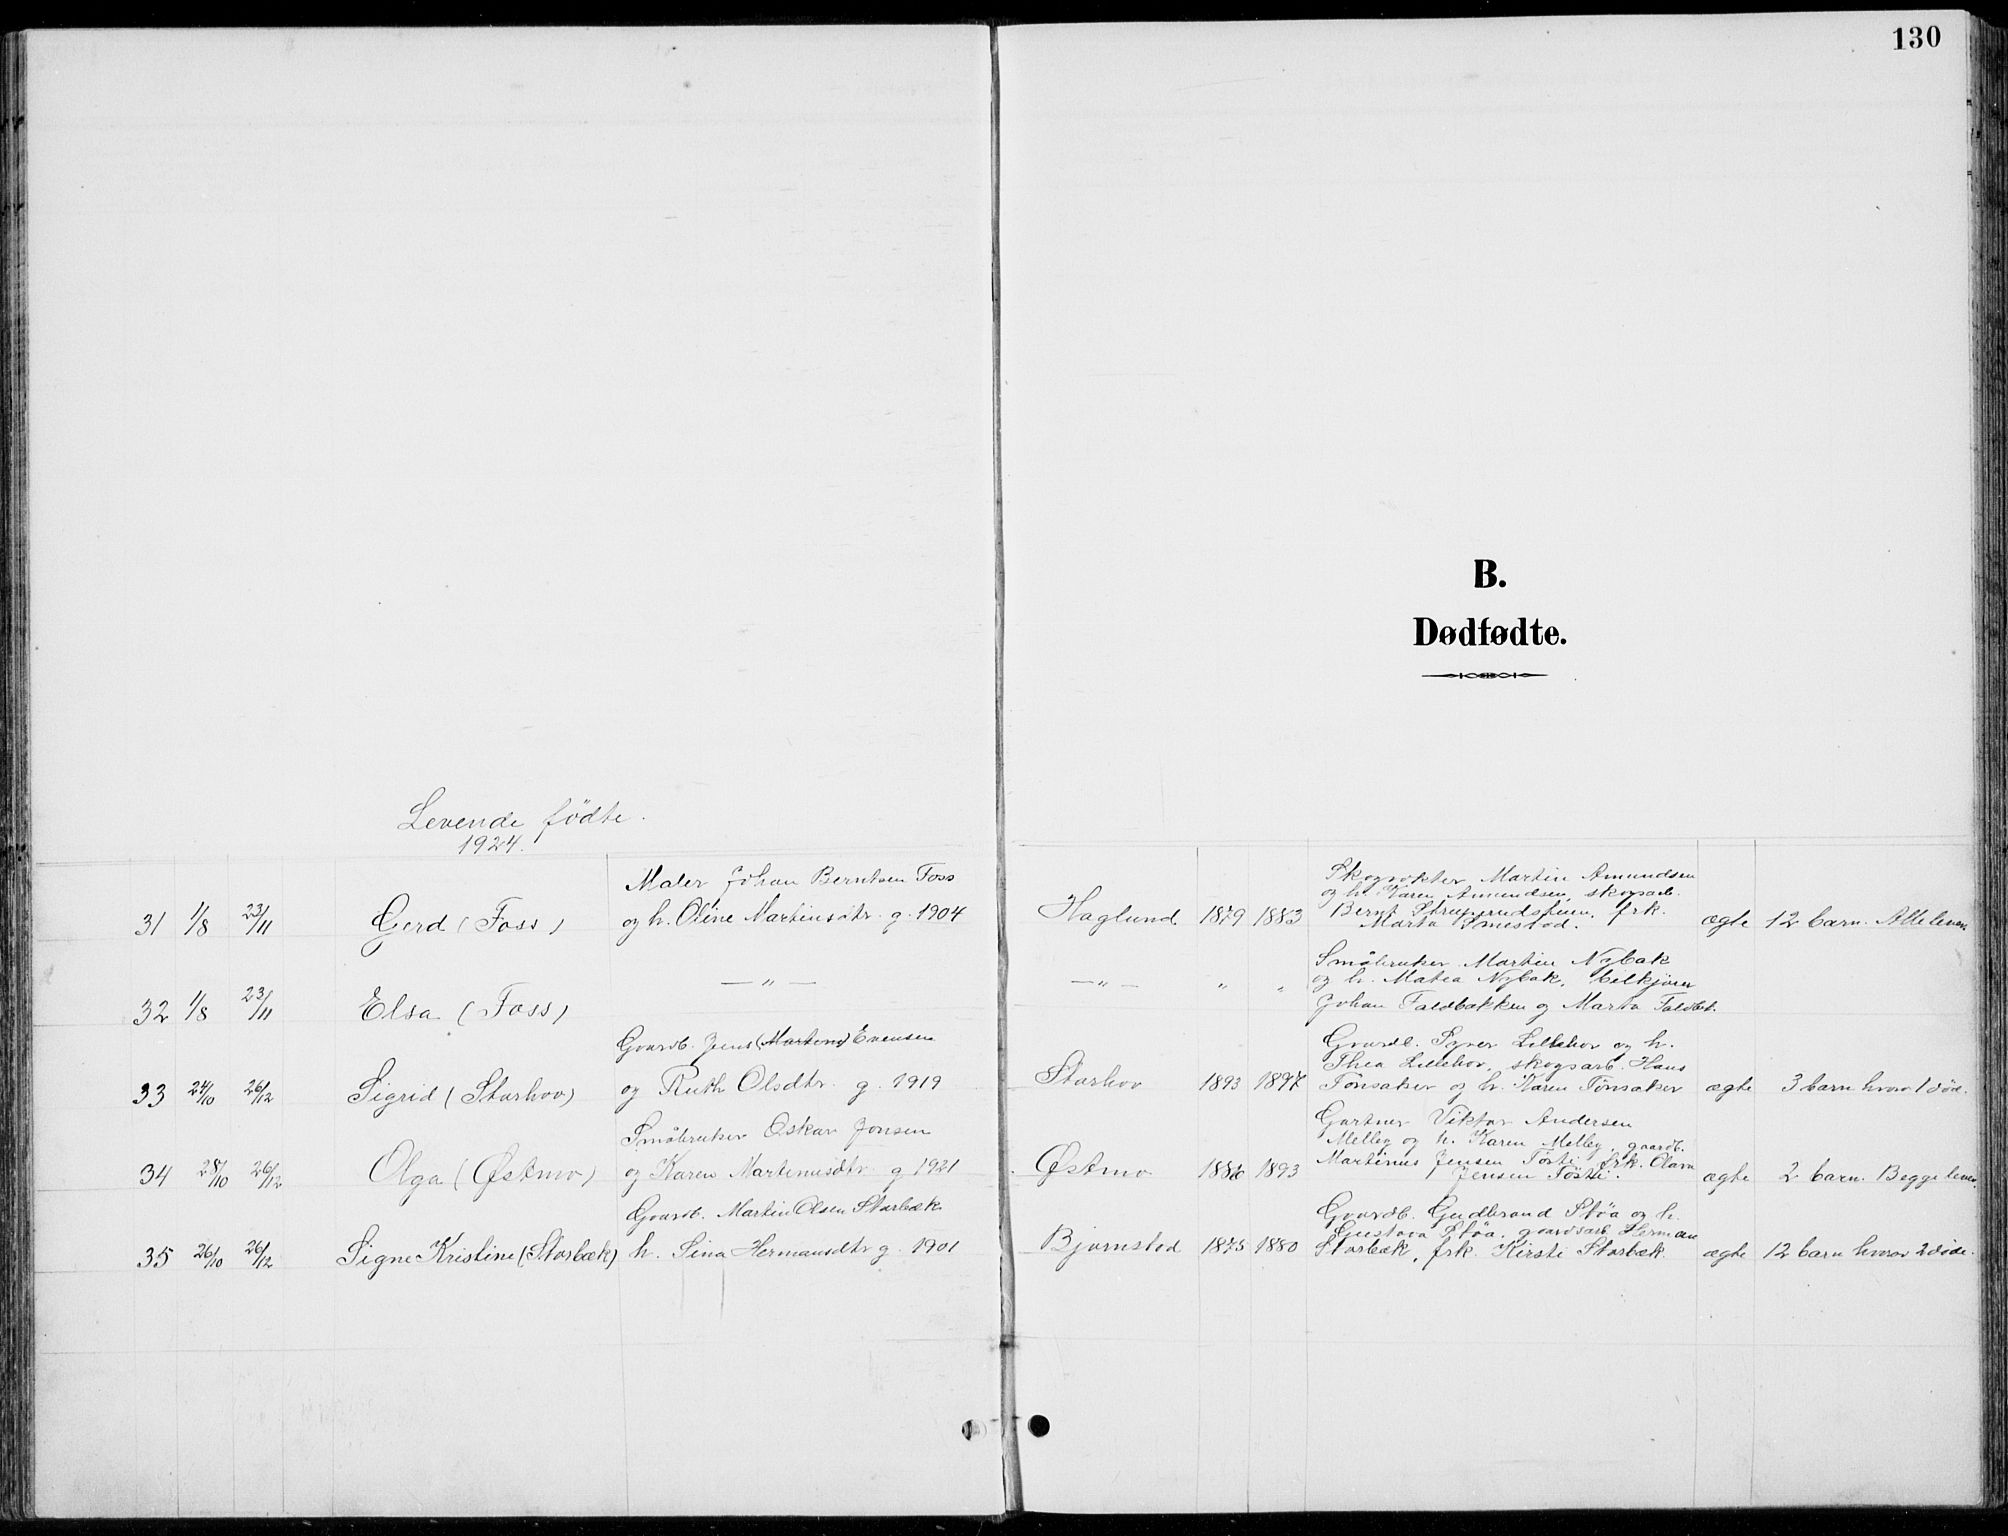 130
B.
Dødfødte.
Levende fødte.
1924.
31 1/8 23/11 Gerd (Foss) Maler Johan Berntsen Foss
og h. Oline Martinsdtr. g. 1904
Haglund 1879 1883 Skogvokter Martin Amundsen
og h. Karen Amundsen, skogsarb.
Bernt frk.
Marta Smestad. ægte 12 barn. Alle lever.
32 1/8 23/11 Elsa (Foss) — " —
— " — " " Småbruker Martin Nybak
og h. Matea Nybak, bilkjører
Johan Faldbakken og Marta Faldbk.
33 24/10 26/12 Sigrid (Storhov) Gaardb. Jens (Martens) Evensen
og Ruth Olsdtr. g. 1919
Storhov 1893 1897 Gaardb. Syver Lillehov og h.
Thea Lillehov, skogsarb. Hans
Tønsaker og h. Karen Tønsaker ægte 3 barn hvorav 1 død.
34 28/10 26/12 Olga (Østmo) Småbruker Oskar Jonsen
og Karen Martinusdtr. g 1921
Østmo 1886 1893 Gartner Viktor Andersen
Melby og h. Karen Melby, gaardb.
Martinus Jensen Tøsti, frk. Olava
Jensen Tøsti. ægte 2 barn. Begge lever.
35 26/10 26/12 Signe Kristine (Storbæk) Gaardb. Martin Olsen Storbæk
h. Sina Hermansdtr g. 1901
Bjørnstad 1875 1880 Gaardb. Gudbrand Støa og h.
Gustava Støa, gaardsarb. Herman
Storbæk, frk. Kirsti Storbæk. ægte 12 barn hvorav 2 døde.